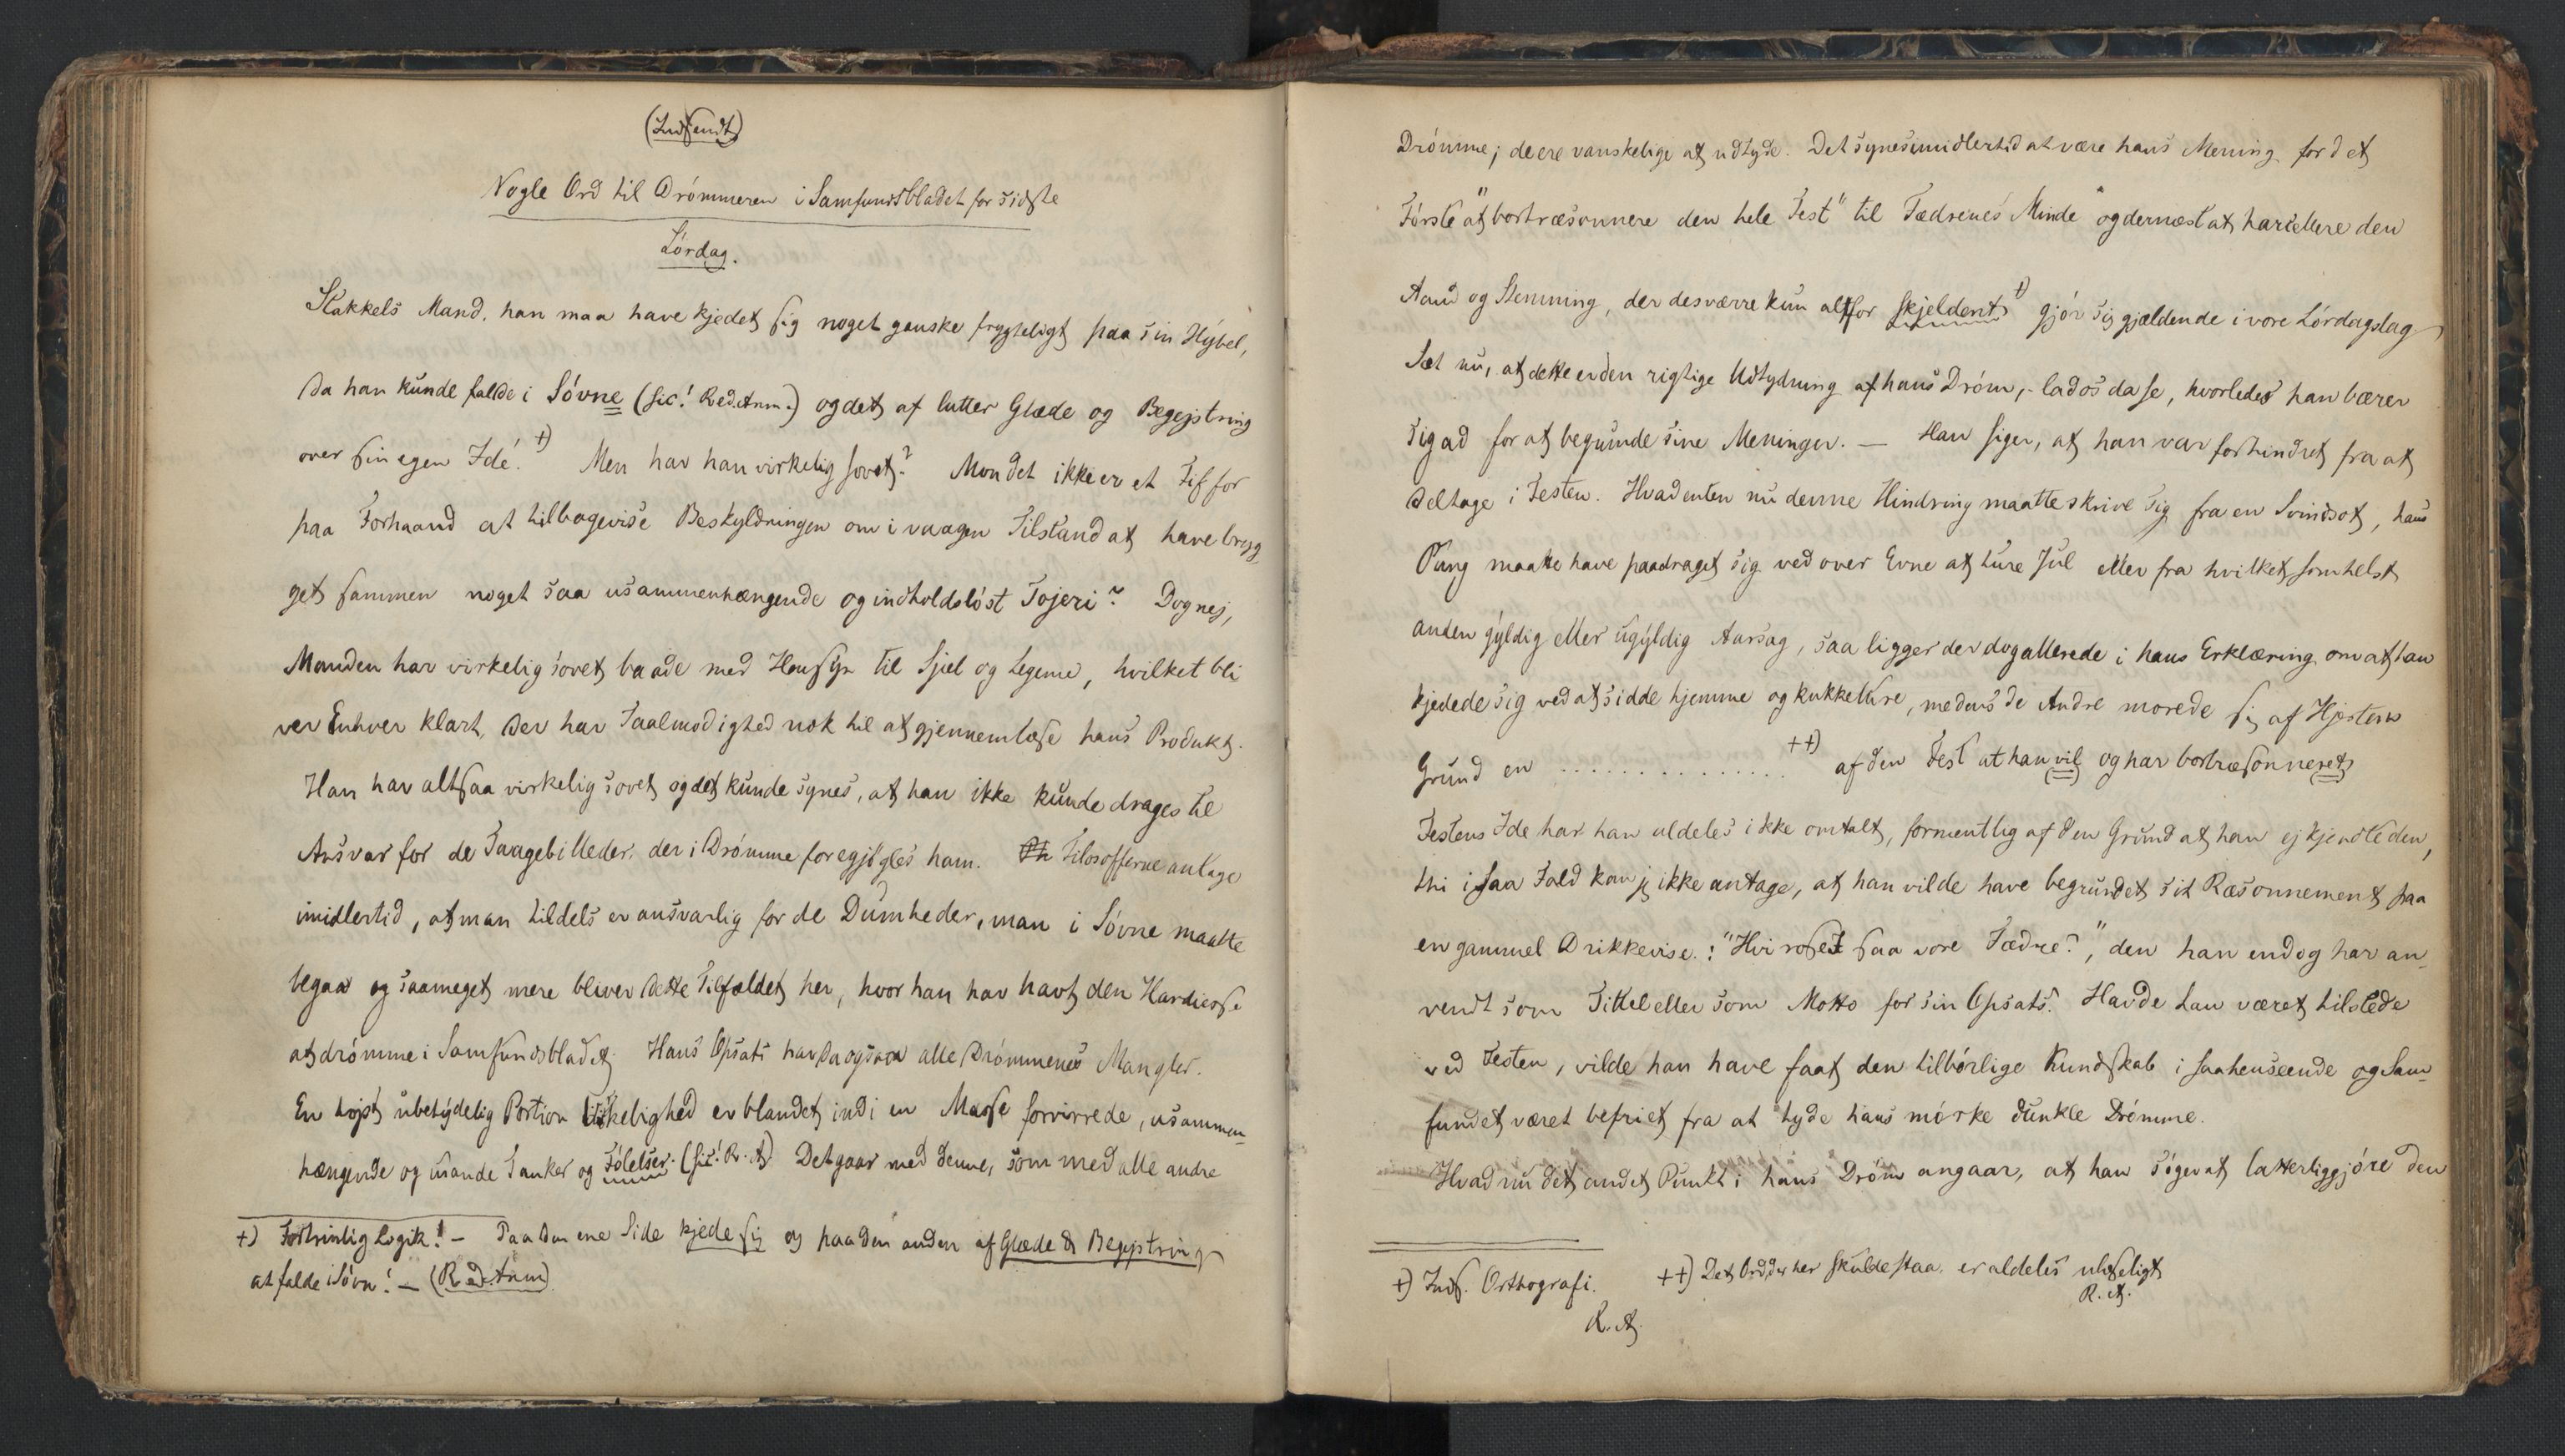 (Indsendt)
Nogle Ord til Drómmeren i Samfundsbladet for sidste
Lórdag.
Stakkels Mand, han maa have kjedet sig noget ganske frygteligt paa sin Hybel,
da han kunde falde i Sóvne (sic! Red. Anm.) og det af lutter Glæde og Begejstring
over sin egen Idé. +) Men har han virkelig sovet? Mon det ikke er et Fif for
paa Forhaand at tilbagevise Beskyldningen om i vaagen Tilstand at have bryg
get sammen noget saa usammenhængende og indholdslóst Tojeri? Dog nej,
Manden har virkelig sovet baade med Hensyn til Sjæl og Legeme, hvilket bli
ver Enhver klart, der har Taalmodighed nok til at gjennemlæse hans Produkt.
Han har altsaa virkelig sovet og det kunde synes, at han ikke kunde drages til
Ansvar for de Taagebilleder, der i Drómme foregjógles ham. Ph Filosofferne antage
imidlertid, at man tildels er ansvarlig for de Dumheder, man i Sóvne maatte
begaa og saameget mere bliver dette Tilfældet her, hvor han har havt den Hardiesse
at drómme i Samfundsbladet. Hans Opsats har da ogsaa alle Drómmenes Mangler.
En hójst ubetydelig Portion Virkelighed er blandet ind i en Masse forvirrede, usammen-
hængende og usande Tanker og Fólelser. (sic! R. A) Det gaar med denne, som med alle andre
+) Fortrinlig Logik! – Paa den ene Side kjede sig og paa den anden af Glæde & Begejstring
at falde i Sóvn! – (Red. Anm)
Drómme; de ere vanskelige at udtyde. Det synes imidlertid at være hans Mening for det
Fórste at bortræsonnere den hele Fest "til Fædrenes Minde" og dernæst at harcellere den
Aand og Stemning, der desværre kun altfor skjeldent +) gjór sig gjældende i vore Lórdagslag
Sæt nu, at dette er den rigtige Udtydning af hans Dróm, – lad os da se, hvorledes han bærer
sig ad for at begrunde sine Meninger. – Han siger, at han var forhindret fra at
deltage i Festen. Hvad enten nu denne Hindring maatte skrive sig fra en Svindsot, hans
Pung maatte have paadraget sig ved over Evne at ture Jul eller fra hvilket somhelst
anden gyldig eller ugyldig Aarsag, saa ligger der dog allerede i hans Erklæring om at han
kjedede sig ved at sidde hjemme og kukkelure, medens de Andre morede sig af Hjertens
Grund en . . . . . . . . . . . . . . . ++) af den Fest at han vil og har bortræsonneret
Festens Ide har han aldeles ikke omtalt, formentlig af den Grund at han ej kjendte den,
thi i saa Fald kan jeg ikke antage, at han vilde have begrundet sit Ræsonnement paa
en gammel Drikkevise: "Hvi rosed saa vore Fædre?", den han endog har an-
vendt som Tittel eller som Motto for sin Opsats. Havde han været tilstede
ved Festen, vilde han have faat den tilbórlige Kundskab i saahenseende og Sam-
fundet været befriet fra at tyde hans mórke dunkle Drómme.
Hvad nu det andet Punkt i hans Dróm angaar, at han sóger at latterliggjóre den
+) Inds. Orthografi.
R. A.
++) Det Ord, der her skulde staa, er aldeles ulæseligt
R. A.